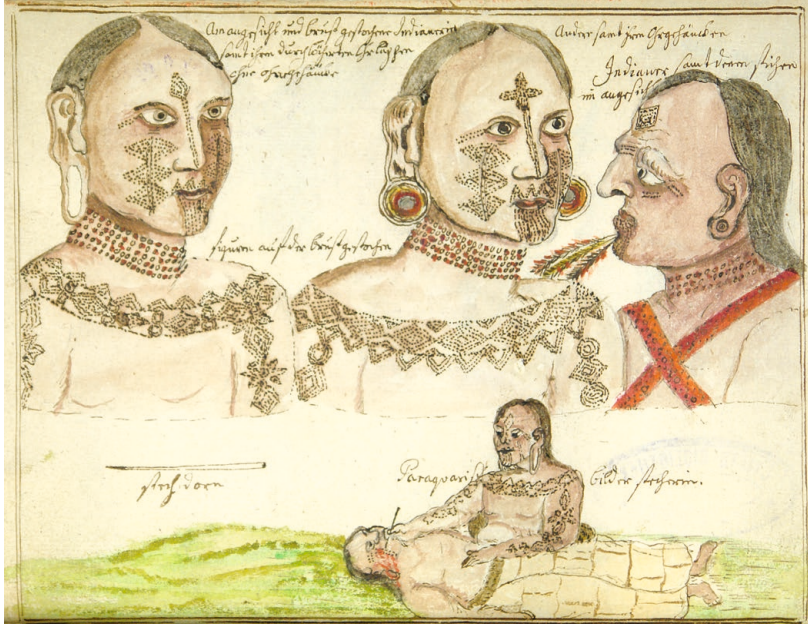 Am angesicht und brust gestochene Indianerin
samt ihren durchlöcherten Ohrlappen
ohne ohrgehäncke
Andere samt ihren Ohrgehäncken
Indianer samt denen stichen
im angesicht
figuren auf der brust gestochen
stech dorn
Paraquarische bilder stecherin.